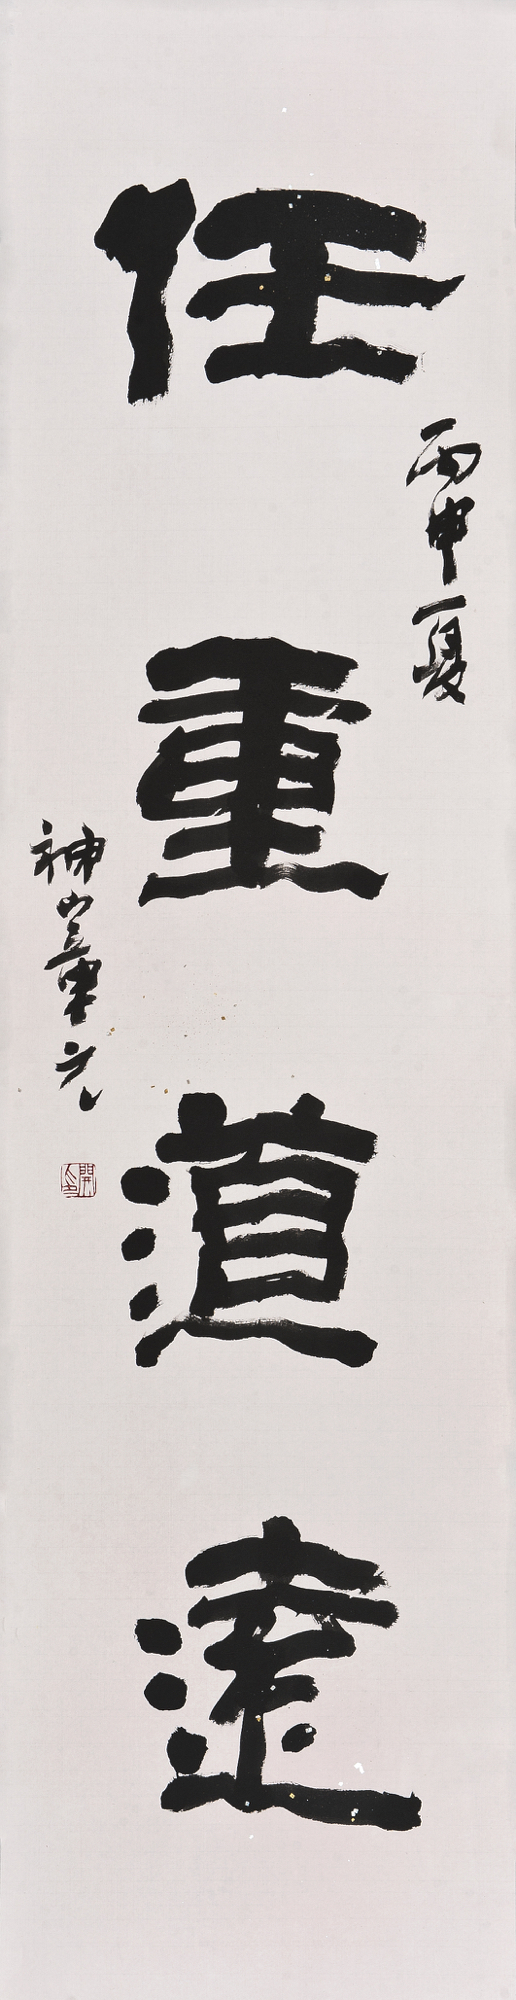 任重道遠
丙申夏
神山章元